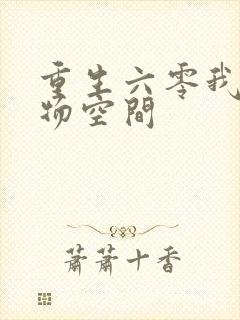 重生六零我
物空間
蕭蕭十香